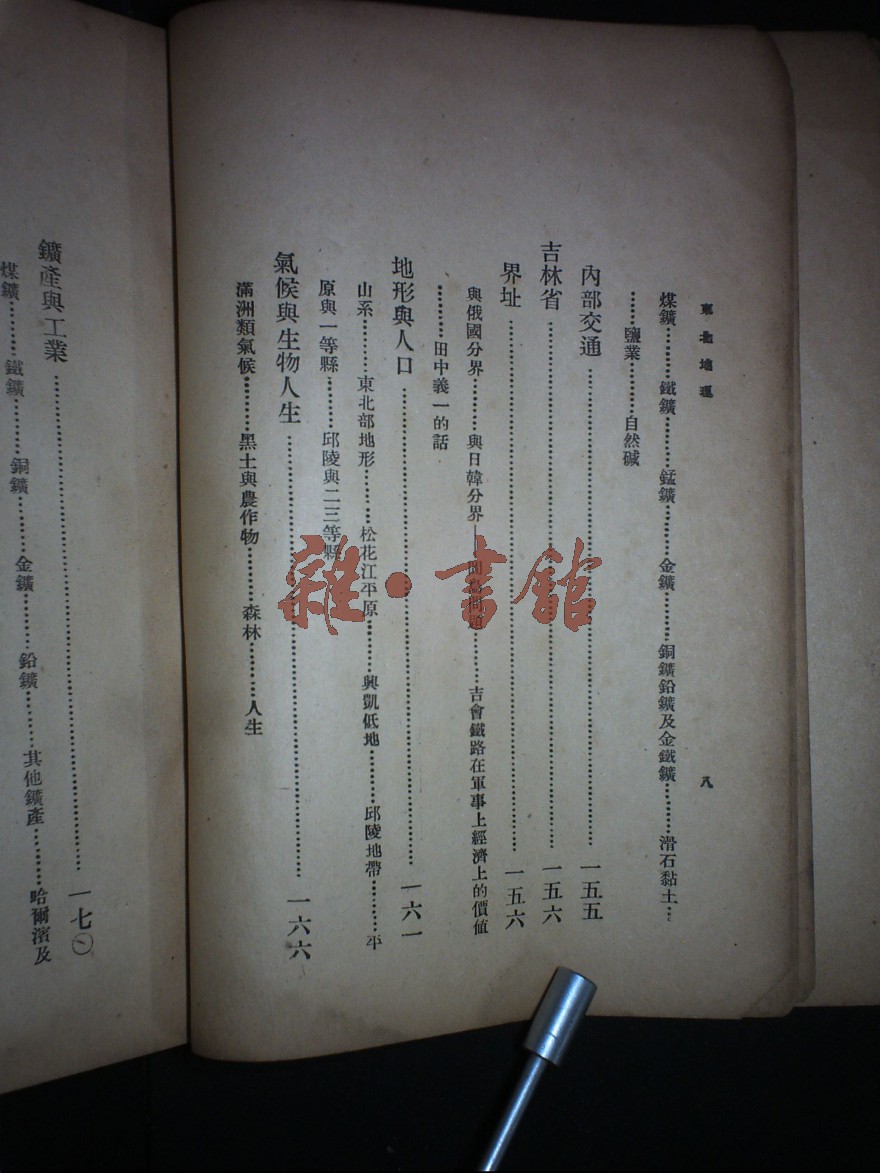 東北地理
八
煤鑛………鐵鑛………錳鑛………金鑛………銅鑛鉛鑛及金鐵鑛………滑石黏土…
……鹽業………自然碱
內部交通……………一五五
吉林省……………一五六
界址……………一五六
與俄國分界………與日韓分界—間島問題………吉會鐵路在軍事上經濟上的價值
………田中義一的話
地形與人口……………一六一
山系………東北部地形………松花江平原………興凱低地………邱陵地帶………平
原與一等縣………邱陵與二三等縣
氣候與生物人生……………一六六
滿洲類氣候………黑土與農作物………森林………人生
鑛產與工業……………一七〇
煤鑛………鐵鑛………銅鑛………金鑛………鉛鑛………其他鑛產………哈爾濱及
雜·書館